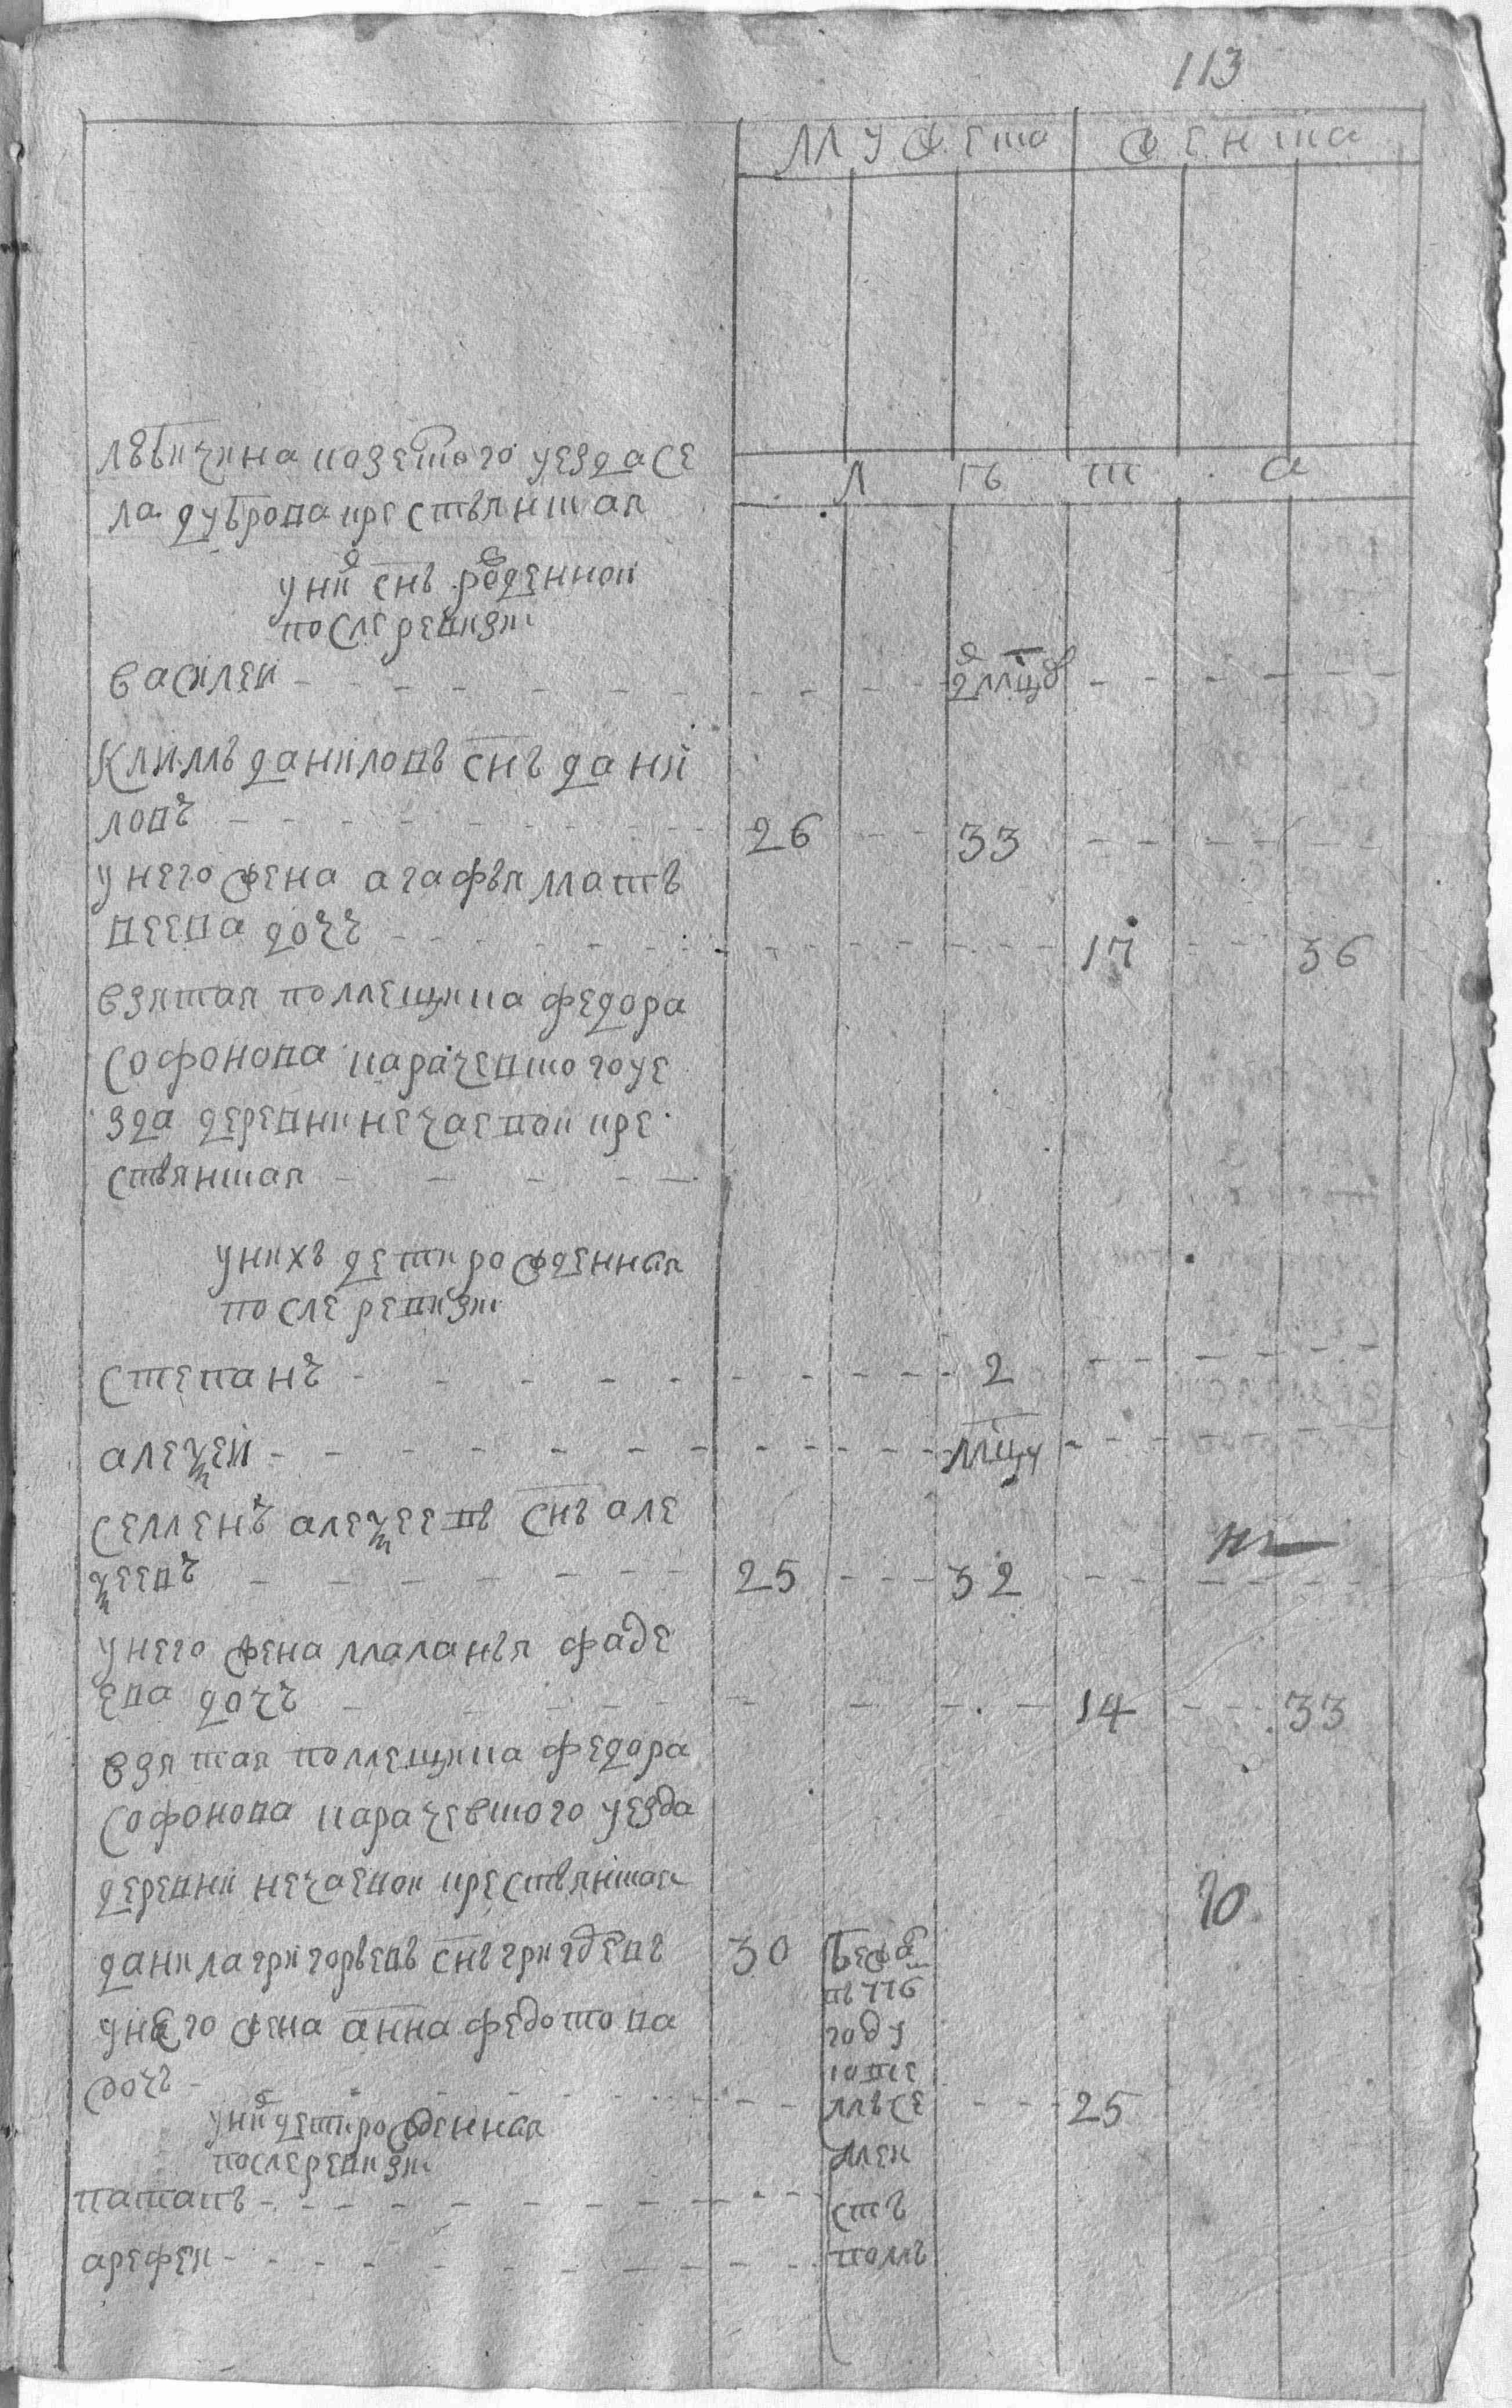 113
мужеска женска
л ѣ т а
лѣвичина козелского уезда се
ла дуброва крестьянская
у них снъ рожденной
после ревизи
василеи
климъ даниловъ снъ дани
ловъ 26 33
у него жена агафья мать
веева дочь 17 36
взятая помещика федора
софонова карачевского уе
зда деревни нечаевой кре
стьянская
у нихъ дети рожденныя
после ревизи
степанъ 2
алеѯеи
семенъ алеѯеевъ снъ але
ѯеевъ 25 32
у него жена маланья фаде
ева дочь 14 33
взятая помещика федора
софонова карачевского уезда
деревни нечаевой крестьянская
данила григорьевъ снъ григорьевъ 30 бежал
въ
году
у него жена анна федотова
дочь 25
у них дети рожденныя
после ревизи
патапъ
арефеи
съ женою